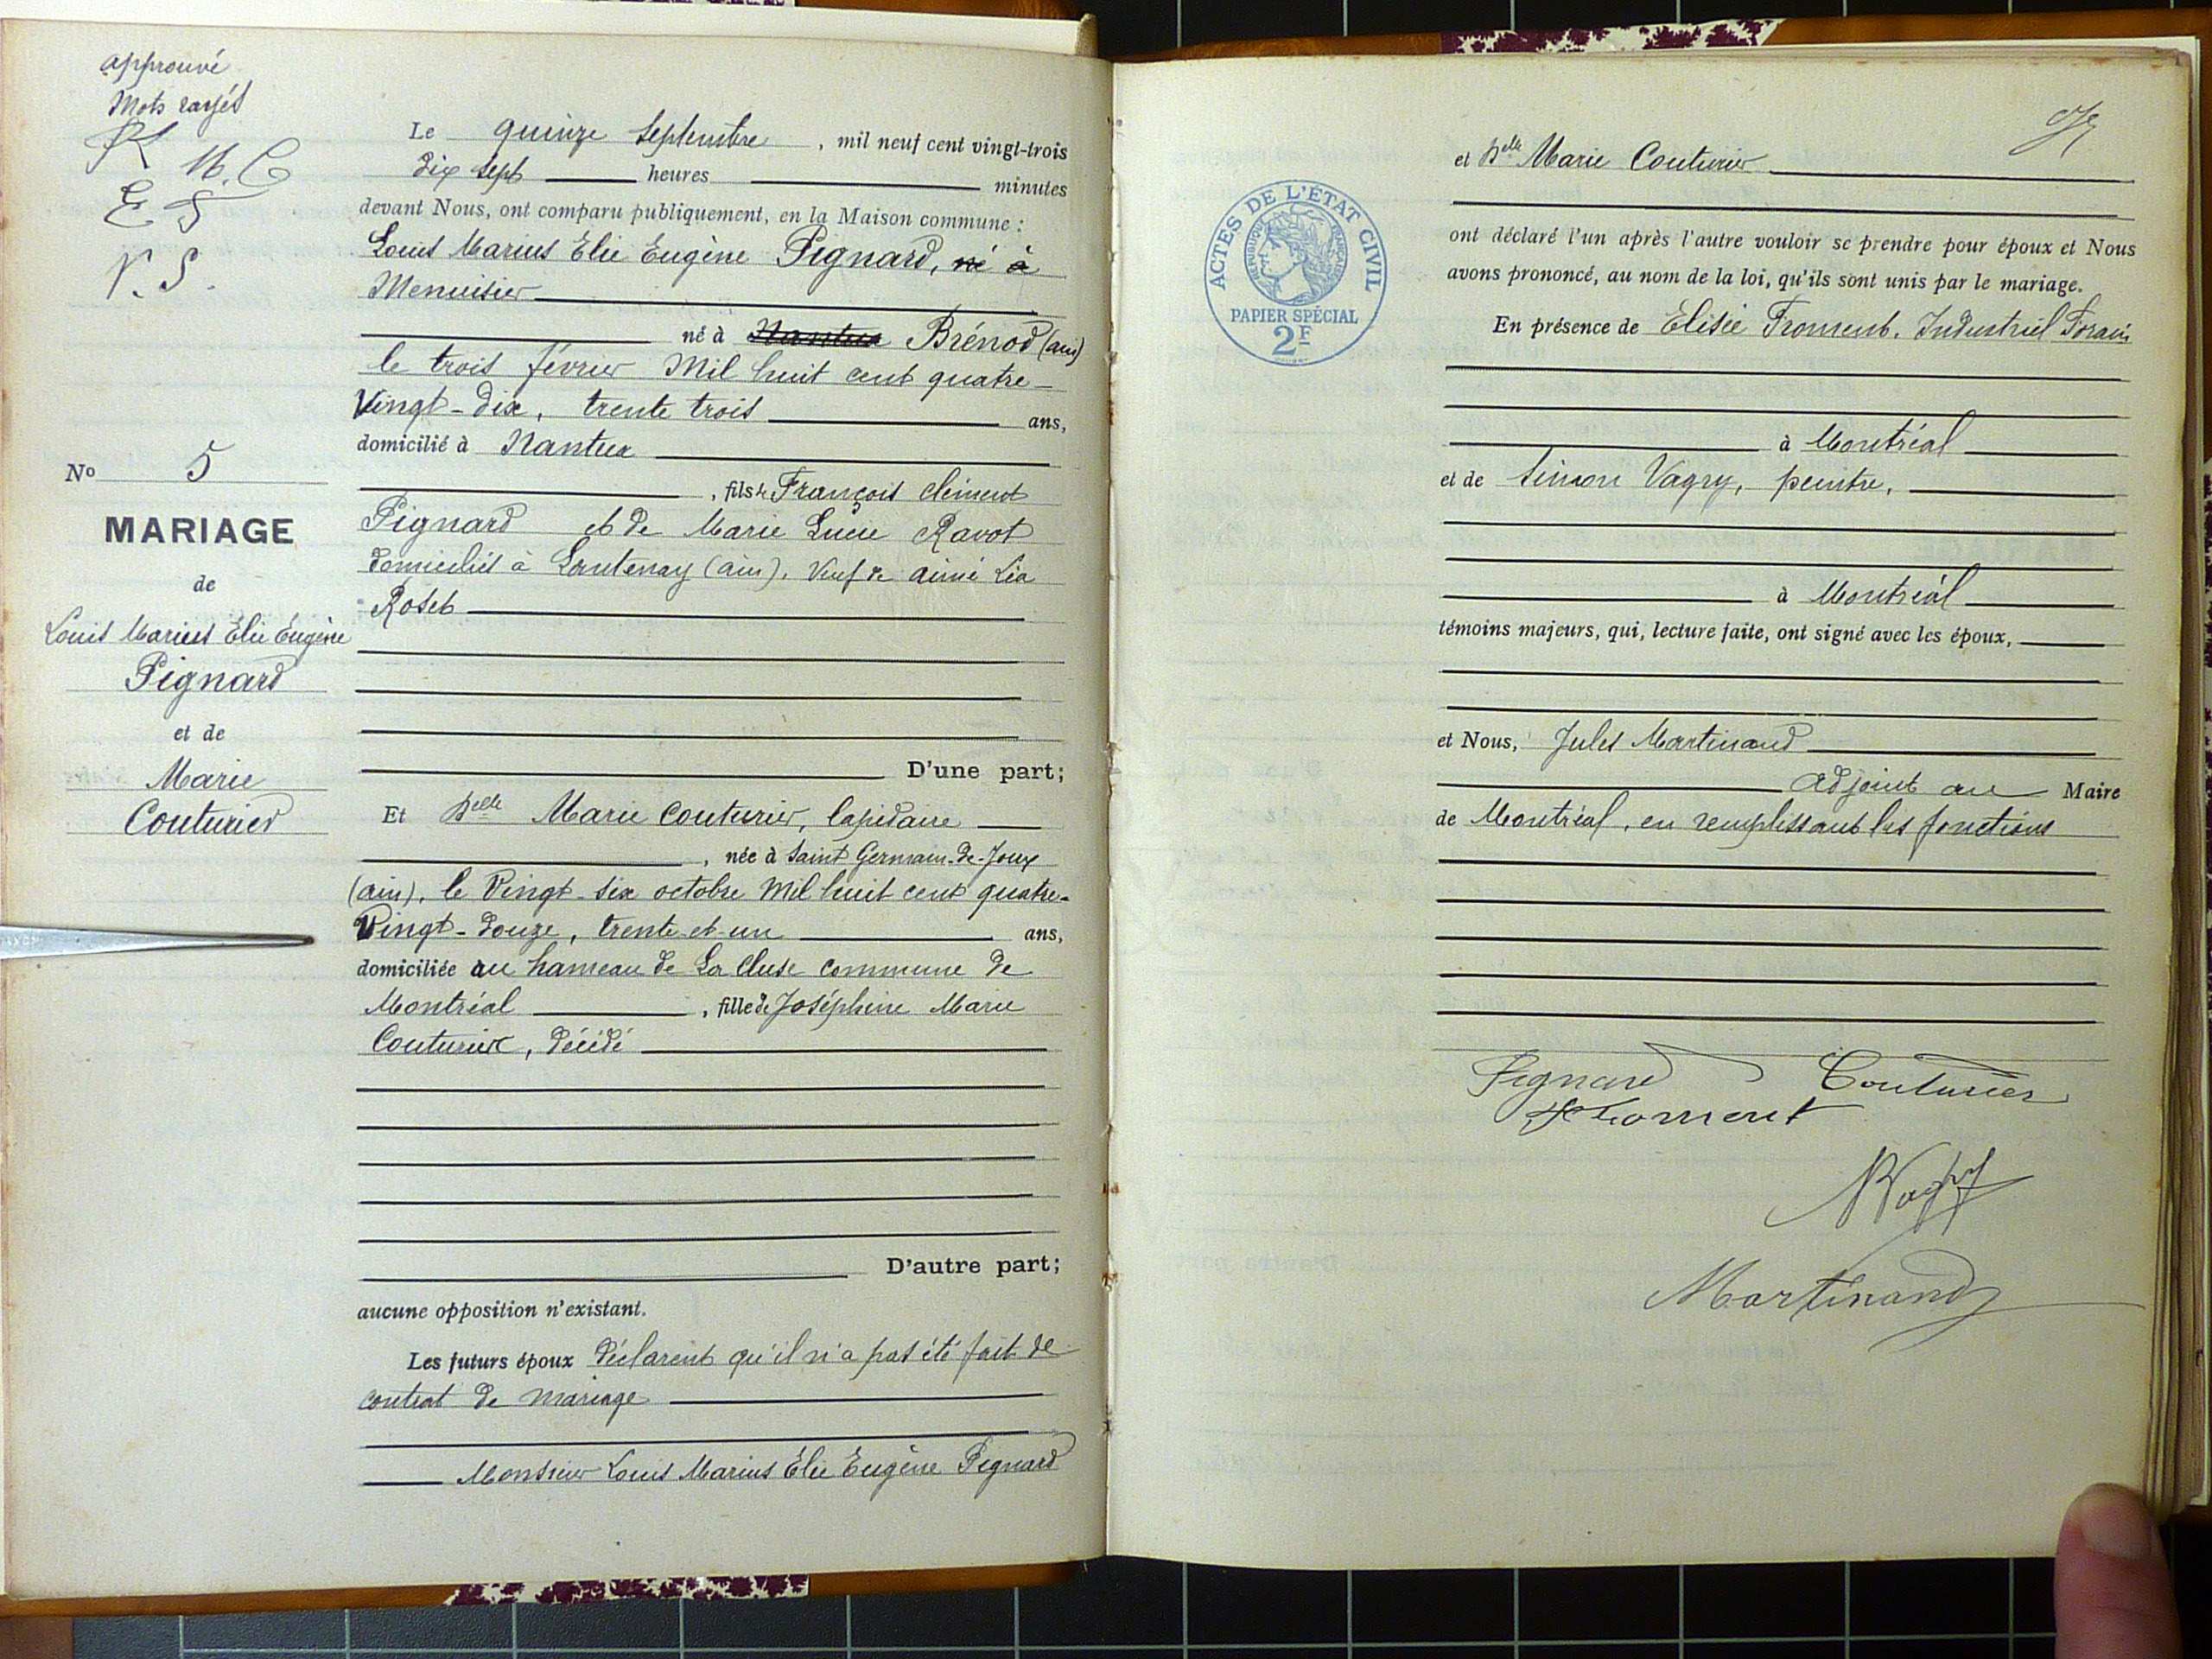 approuvé
Mots rayés
M. C
E S
V. S.
Le quinze Septembre, mil neuf cent vingt-trois
dix sept heures minutes
devant Nous, ont comparu publiquement, en la Maison commune :
Louis Marius Elie Eugène Pignard, né à
Menuisier
né à Nantua Brénod (ain)
le trois février Mil huit cent quatre-
Vingt-dix, trente trois ans,
domicilié à Nantua
, fils de François clément
Pignard et de Marie Lucie Ravot
domiciliés à Lantenay (ain). Veuf de aimé Léa
Roset
D'une part;
No 5
MARIAGE
de
Louis Marius Élie Eugène
Pignard
et de
Marie
Couturier
Et Delle Marie Couturier, lapidaire
, née à Saint Germain-de-Joux
(ain), le Vingt-six octobre Mil huit cent quatre-
Vingt-douze, trente-et-un ans,
domiciliée au hameau de La Cluse commune de
Montréal, fille de Joséphine Marie
Couturier, décédé
D'autre part;
aucune opposition n'existant.
Les futurs époux déclarent qu'il n'a pas été fait de
contrat de mariage
Monsieur Louis Marius Élie Eugène Pignard
et Delle Marie Couturier
ACTES DE L'ÉTAT CIVIL
RÉPUBLIQUE FRANÇAISE
PAPIER SPÉCIAL
2F
ont déclaré l'un après l'autre vouloir se prendre pour époux et Nous
avons prononcé, au nom de la loi, qu'ils sont unis par le mariage.
En présence de Elisée Froment, Industriel Forain
à Montréal
et de Simon Vagry, peintre,
à Montréal
témoins majeurs, qui, lecture faite, ont signé avec les époux,
et Nous, Jules Martinand
adjoint au Maire
de Montréal, en remplissant les fonctions
Pignard Couturier
Froment
Vagry
Martinand